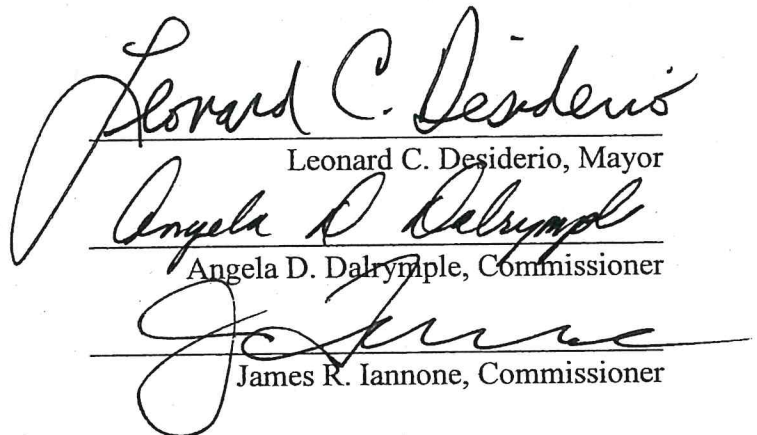 Leonard C. Desiderio
Leonard C. Desiderio, Mayor
Angela D Dalrymple
Angela D. Dalrymple, Commissioner
James R. Iannone, Commissioner